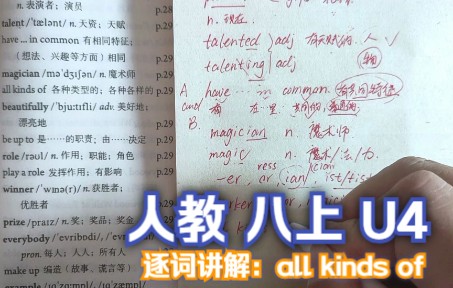 n. 表演者；演员
talent /'tælənt/ n. 天资；天赋 p.28
have ... in common 有相同特征； p.28
（想法、兴趣等方面）相同
magician /mə'dʒɪʃn/ n. 魔术师 p.29
all kinds of 各种类型的；各种各样的 p.29
beautifully /'bju:tɪfli/ adv. 美好地； p.29
漂亮地
be up to 是……的职责；由……决定 p.29
role /rəʊl/ n. 作用；职能；角色 p.29
play a role 发挥作用；有影响 p.29
winner /'wɪnə(r)/ n. 获胜者； p.29
优胜者
prize /praɪz/ n. 奖；奖品；奖金
everybody /'evribɒdi/,
pron. 每人；人人；所有人
make up 编造（故事、谎言等）
n.
talented adj
talenting adj
A have ... in common. 有共同特征
and
B.
magician n. 魔术师
magic n. 魔术/法/力
-er, or, ian, ist
人教 八上 U4
逐词讲解：all kinds of